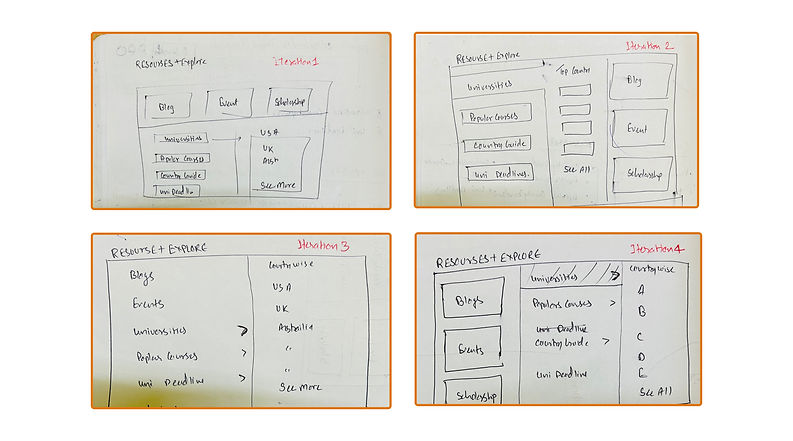 RESOURSES + Explore
Iteration 1
Blog
Event
Scholarship
Universities
Popular Courses
Country Guide
Uni Deadlin
USA
UK
Aust
See More
RESOURSE + Explore
Iteration 2
Universities
Popular Courses
Country Guide
Uni Deadlines
Top Country
See All
Blog
Event
Scholarship
RESOURSE + EXPLORE
Iteration 3
Blogs
Events
Universities >
Popular Courses >
Uni Deadline >
Countrywise
USA
UK
Australia
"
"
See More
RESOURSES + EXPLORE
Iteration 4
Blogs
Events
Scholarship
Universities >
Populars Courses >
Uni Deadline
Country Guide >
Uni Deadline
Countrywise
A
B
C
D
E
See All